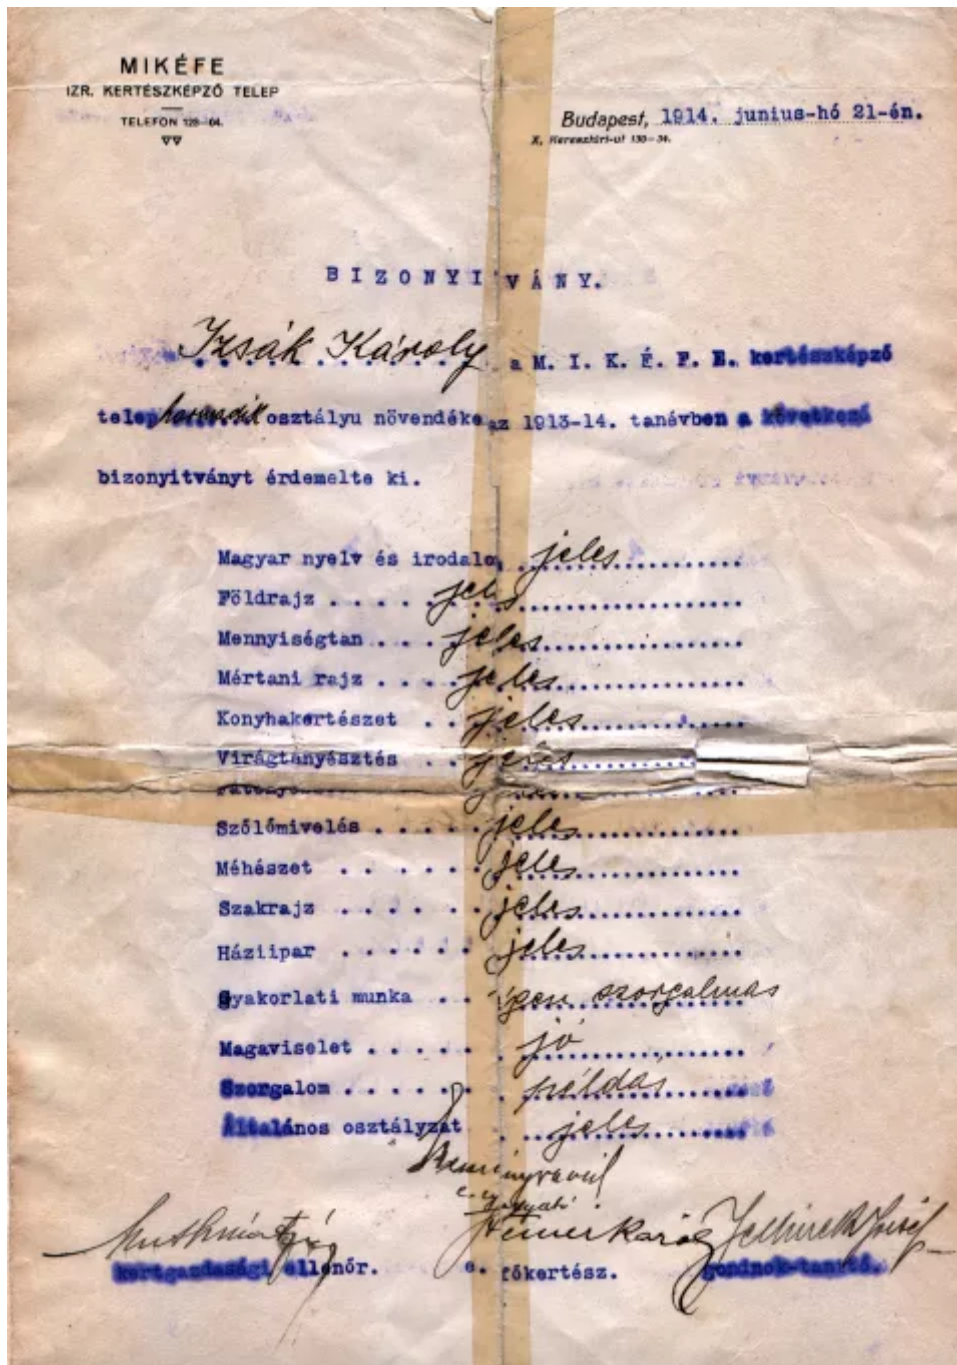 MIKÉFE
IZR. KERTÉSZKÉPZŐ TELEP
TELEFON 128-64.
Budapest, 1914. junius-hó 21-én.
X, Keresztúri-ut 130-34.
BIZONYITVÁNY.
Izsák Károly a M. I. K. É. F. E. kertészképző
telep harmadik osztályu növendéke az 1913-14. tanévben a következő
bizonyitványt érdemelte ki.
Magyar nyelv és irodalo jeles
Földrajz . . . . jeles
Mennyiségtan . . . jeles
Mértani rajz . . . . jeles
Konyhakertészet . . jeles
Virágtenyésztés . . jeles
Szőlőmivelés . . . . . jeles
Méhészet . . . . . . jeles
Szakrajz . . . . . . jeles
Háziipar . . . . . . jeles
Gyakorlati munka . . igen szorgalmas
Magaviselet . . . . . jó
Szorgalom . . . . . . példás
Általános osztályzat . jeles
Jellinek József
kertgazdasági ellenőr. e. főkertész. gondnok-tanitó.